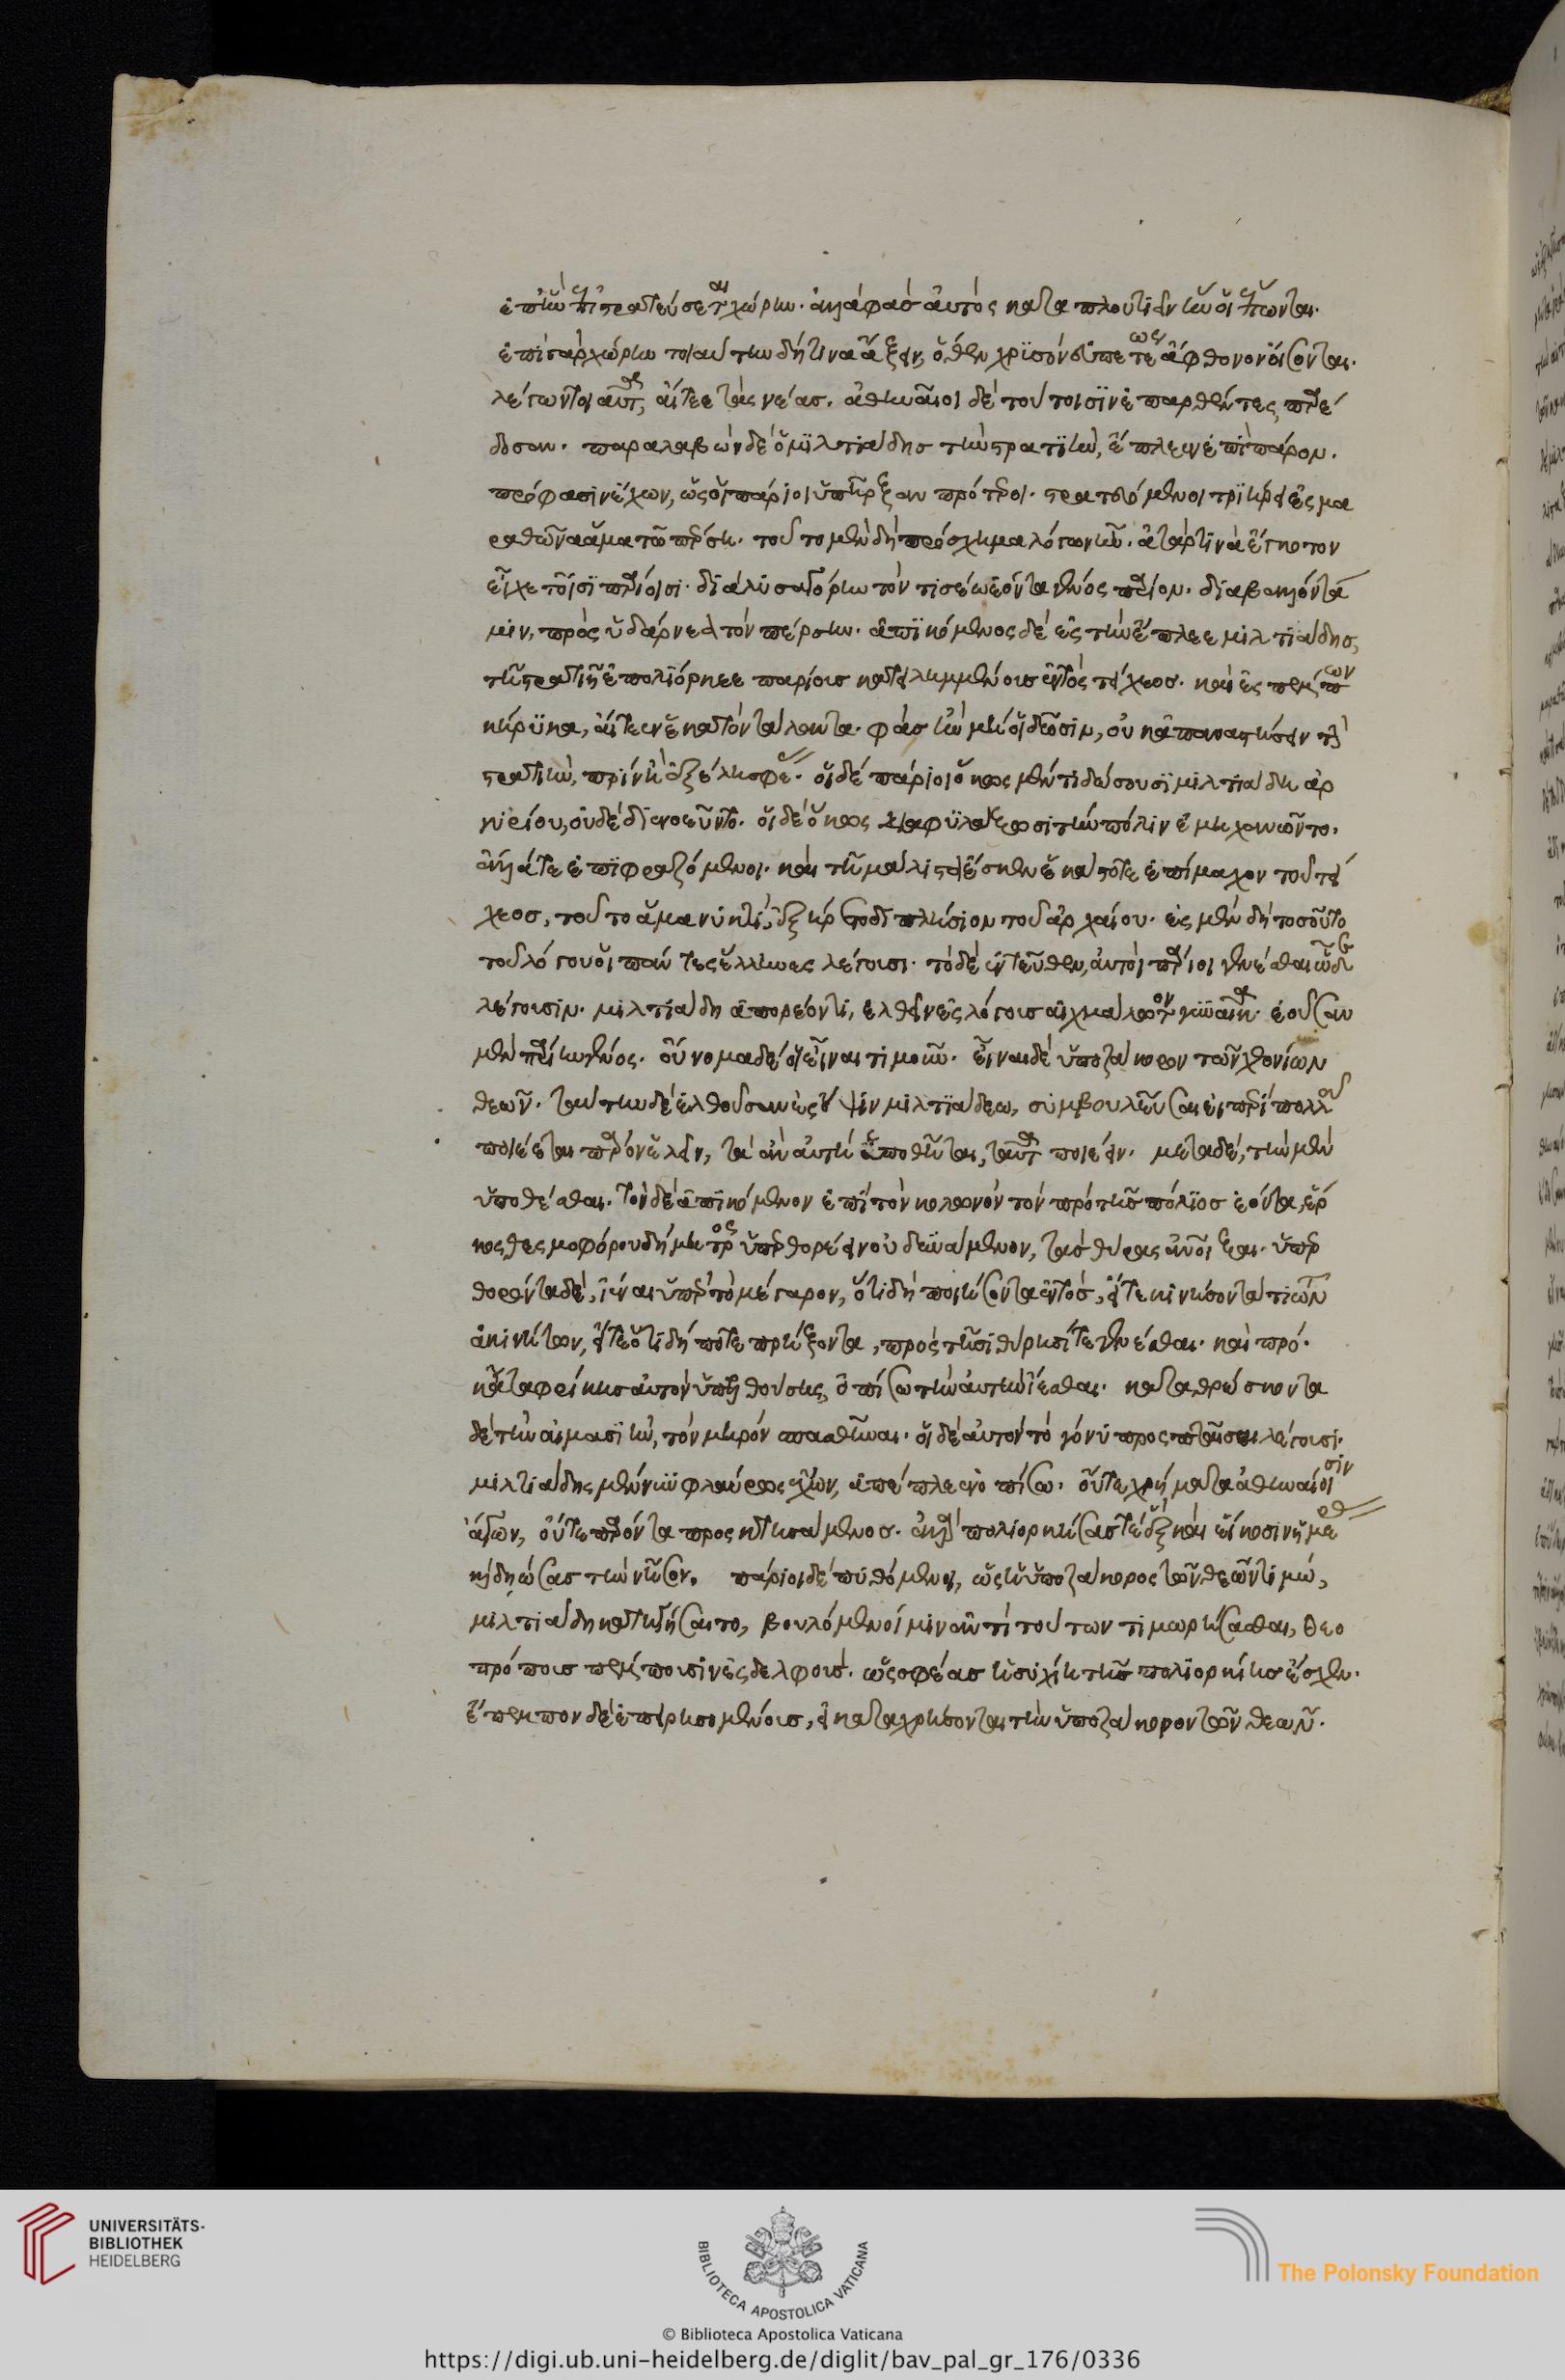 ἐπ' ἣν ἐπιστρατεύσεται χώρην. ἀλλὰ φὰσ αὐτὸς καταπλουτιεῖν ἢν οἱ ἕπωνται.
ἐπὶ γὰρ χώρην τοιαύτην δή τινα ἄξειν, ὅθεν χρϋσὸν εὐπετέως ἄφθονον οἴσονται.
λέγων τοιαῦτα, αἴτεε τὰς νέασ. ἀθηναῖοι δὲ τούτοισϊν ἐπαρθέντες παρέ
δοσαν. παραλαβὼν δὲ ὁ μϊλτιάδησ τὴν στρατϊὴν, ἔπλεεν ἐπὶ πάρον.
πρόφασιν ἔχων, ὡς οἱ πάριοι ὑπῆρξαν πρότεροι. στρατευόμενοι τρϊήρει ἐς μα
ραθῶνα ἅμα τῶ πέρση. τοῦτο μὲν δὴ πρόσχημα λόγων ἦν. ἀτάρ τινα ἔγκοτον
εἶχε τοῖσϊ παρίοισι. διὰ λυσαγόρην τὸν τισέω ἐόντα γένος πάριον. διαβαλόντά
μιν, πρὸς ὑδάρνεα τὸν πέρσην. ἀπϊκόμενος δὲ ἐς τὴν ἔπλεε μιλτϊάδησ,
τῆ στρατιῆ ἐπολϊόρκεε παρίουσ κατειλημμένουσ ἐντὸς τείχεοσ. καὶ ἐς πέμπων
κήρϋκα, αἴτεεν ἑκατὸν τάλαντα. φὰσ ἢν μή οἱ δῶσιν, οὐκ ἀπαναστήσειν τὴν
στρατιὴν, πρὶν ἢ ἐξέλη σφέας. οἱ δὲ πάριοι ὅκως μέν τι δώσουσϊ μιλτιάδη ἀρ
γυρίου, οὐδὲ διενοεῦντο. οἱ δὲ ὅκως διαφϋλάξωσι τὴν πόλιν ἐμηχανῶντο.
ἀλλά τε ἐπϊφραζόμενοι. καὶ τῆ μάλιστα ἔσκεν ἑκάστοτε ἐπίμαχον τοῦ τεί
χεοσ, τοῦτο ἅμα νύκτι, ἐξήρετο διπλήσιον τοῦ ἀρχαίου. ἐς μὲν δὴ τοσοῦτο
τοῦ λόγου οἱ πάντες ἕλληνες λέγουσι. τὸ δὲ ἐντεῦθεν, αὐτοὶ πάριοι γενέσθαι ὧδε
λέγουσιν. μιλτιάδη ἀπορέοντι, ἐλθεῖν ἐς λόγουσ αἰχμάλωτον γυναῖκα. ἐοῦσαν
μὲν παρίην γένος. οὔνομα δέ οἱ εἶναι τιμοῦν. εἶναι δὲ ὑποζάκορον τῶν χθονίων
θεῶν. ταύτην δὲ ἐλθοῦσαν ἐς ὄψιν μιλτϊάδεω, συμβουλεῦσαι εἰ περὶ πολλοῦ
ποιέεται πάρον ἑλεῖν, τὰ ἂν αὐτὴ ὑποθῆται, ταῦτα ποιέειν. μετὰ δὲ, τὴν μὲν
ὑποθέσθαι. τὸν δὲ ἀπϊκόμενον ἐπὶ τὸν κολωνὸν τὸν πρὸ τῆσ πόλϊοσ ἐόντα, ἕρ
κος θεσμοφόρου δήμητρος ὑπερθορέειν οὐ δυνάμενον, τὰσ θύρας ἀνοῖξαι. ὑπερ
θορόντα δὲ, ἰέναι ὑπὲρ τὸ μέγαρον, ὅτι δὴ ποιήσοντα ἐντὸσ, εἴτε κινήσοντά τι τῶν
ἀκινήτων, εἴτε ὅτι δή ποτε πρήξοντα, πρὸς τῆσι θύρησί τε γενέσθαι. καὶ πρό.
κα τε φρίκησ αὐτὸν ὑπελθούσης, ὀπίσω τὴν αὐτὴν ἵεσθαι. καταθρώσκοντα
δὲ τὴν αἱμασϊὴν, τὸν μηρὸν σπασθῆναι. οἱ δὲ αὐτὸν τὸ γόνυ προσπταῖσαι λέγουσι.
μιλτιάδης μέν νυν φλαύρως ἔχων, ἀπέπλεεν ὀπίσω. οὔτε χρήματα ἀθηναίοισιν
ἄγων, οὔτε πάρον τα προσκτησάμενοσ. ἀλλὰ πολιορκήσας τε ἓξ καὶ εἴκοσιν ἡμέρας
κὶ δηώσασ τὴν νῆσον. πάριοι δὲ πυθόμενοι, ὡς ἡ ὑποζάκορος τῶν θεῶν τιμώ,
μιλτιάδη κατηγήσατο, βουλόμενοί μιν ἀντὶ τούτων τιμωρήσασθαι, θεο
πρόπουσ πέμπουσιν ἐς δελφούσ. ὥς σφέασ ἡσυχίη τῆσ πολϊορκίησ ἔσχεν.
ἔπεμπον δὲ ἐπειρησομένουσ, εἰ καταχρήσονται τὴν ὑποζάκορον τῶν θεῶν.
UNIVERSITÄTS-
BIBLIOTHEK
HEIDELBERG
BIBLIOTECA APOSTOLICA VATICANA
The Polonsky Foundation
© Biblioteca Apostolica Vaticana
https://digi.ub.uni-heidelberg.de/diglit/bav_pal_gr_176/0336